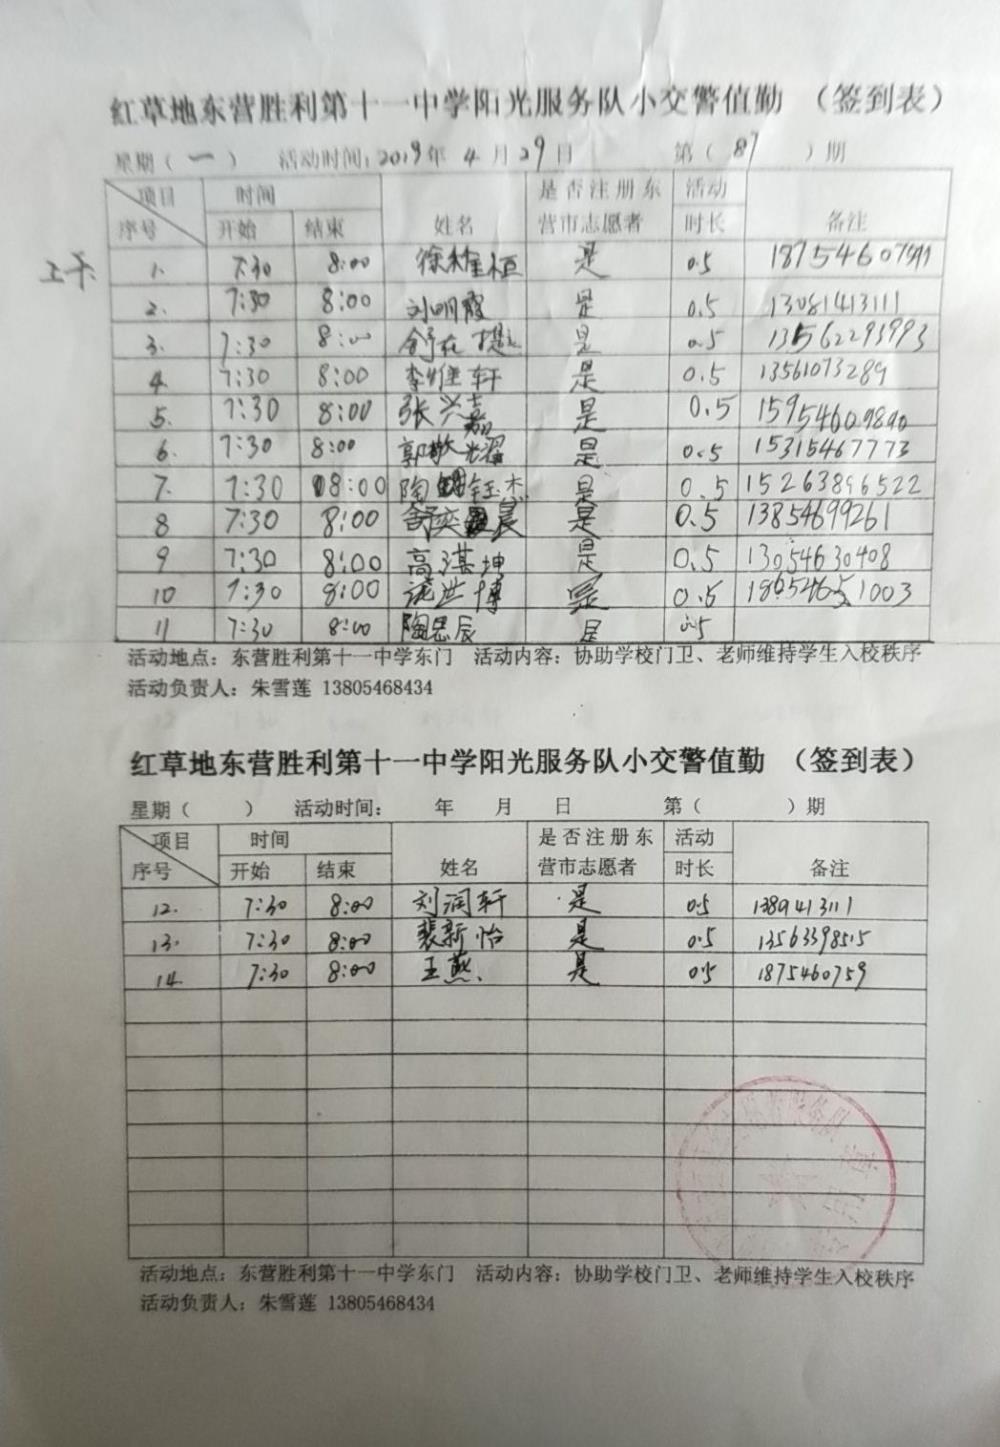 红草地东营胜利第十一中学阳光服务队小交警值勤 （签到表）
星期（ 一 ） 活动时间：2019年 4 月 29 日 第（ 87 ）期
项目 时间 姓名 是否注册东营市志愿者 活动时长 备注
序号 开始 结束
上午
1. 7:30 8:00 是 0.5
2. 7:30 8:00 刘明霞 是 0.5 13081413111
3. 7:30 8:00 是 0.5 13562293993
4 7:30 8:00 李惟轩 是 0.5 13561073289
5. 7:30 8:00 张兴嘉 是 0.5 15954609890
6. 7:30 8:00 郭敬耀 是 0.5 15315467773
7. 7:30 08:00 陶钰杰 是 0.5 15263896522
8 7:30 8:00 舒奕晨 是 0.5 13854699261
9 7:30 8:00 高湛坤 是 0.5 13054630408
10 7:30 8:00 是 0.5
11 7:30 8:00 陶思辰 是 0.5
活动地点：东营胜利第十一中学东门 活动内容：协助学校门卫、老师维持学生入校秩序
活动负责人：朱雪莲 13805468434
红草地东营胜利第十一中学阳光服务队小交警值勤 （签到表）
星期（ ） 活动时间： 年 月 日 第（ ）期
项目 时间 姓名 是否注册东营市志愿者 活动时长 备注
序号 开始 结束
12. 7:30 8:00 刘润轩 是 0.5 1389413111
13. 7:30 8:00 裴新怡 是 0.5 13563398515
14. 7:30 8:00 王燕 是 0.5 1875460759
活动地点：东营胜利第十一中学东门 活动内容：协助学校门卫、老师维持学生入校秩序
活动负责人：朱雪莲 13805468434